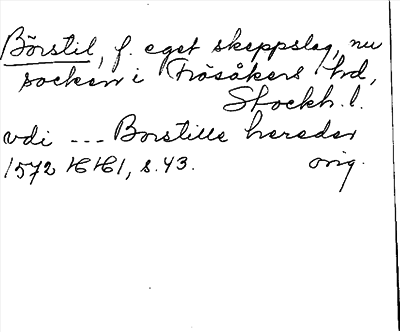 Börstil, f. eget skeppslag, nu
socken i Frösåkers hd,
Stockh. l.
vdi --- Borstille hereder
1572 HH1, s. 43. orig.